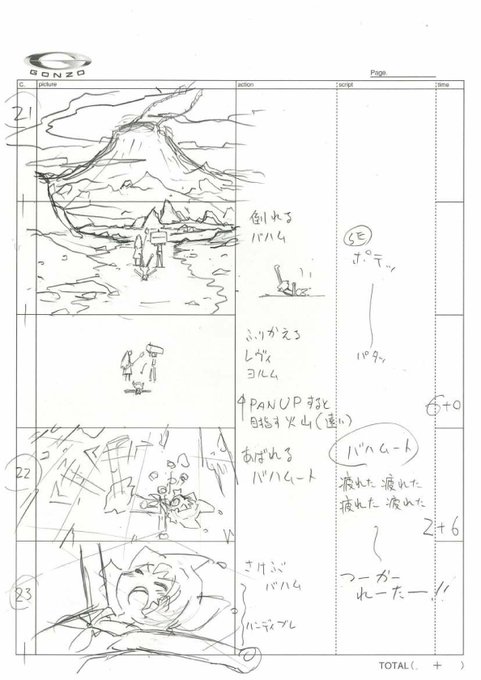 GONZO
Page.
C. picture action script time
21
倒れる
バハム
SE
ポテッ
パタッ
ふりかえる
レヴィ
ヨルム
↑PAN UPすると
目指す火山(遠い)
6+0
22
あばれる
バハムート
バハムート
疲れた 疲れた
疲れた 疲れた
2+6
23
さけぶ
バハム
ハンディブレ
つーかー
れーたー!!
TOTAL( + )